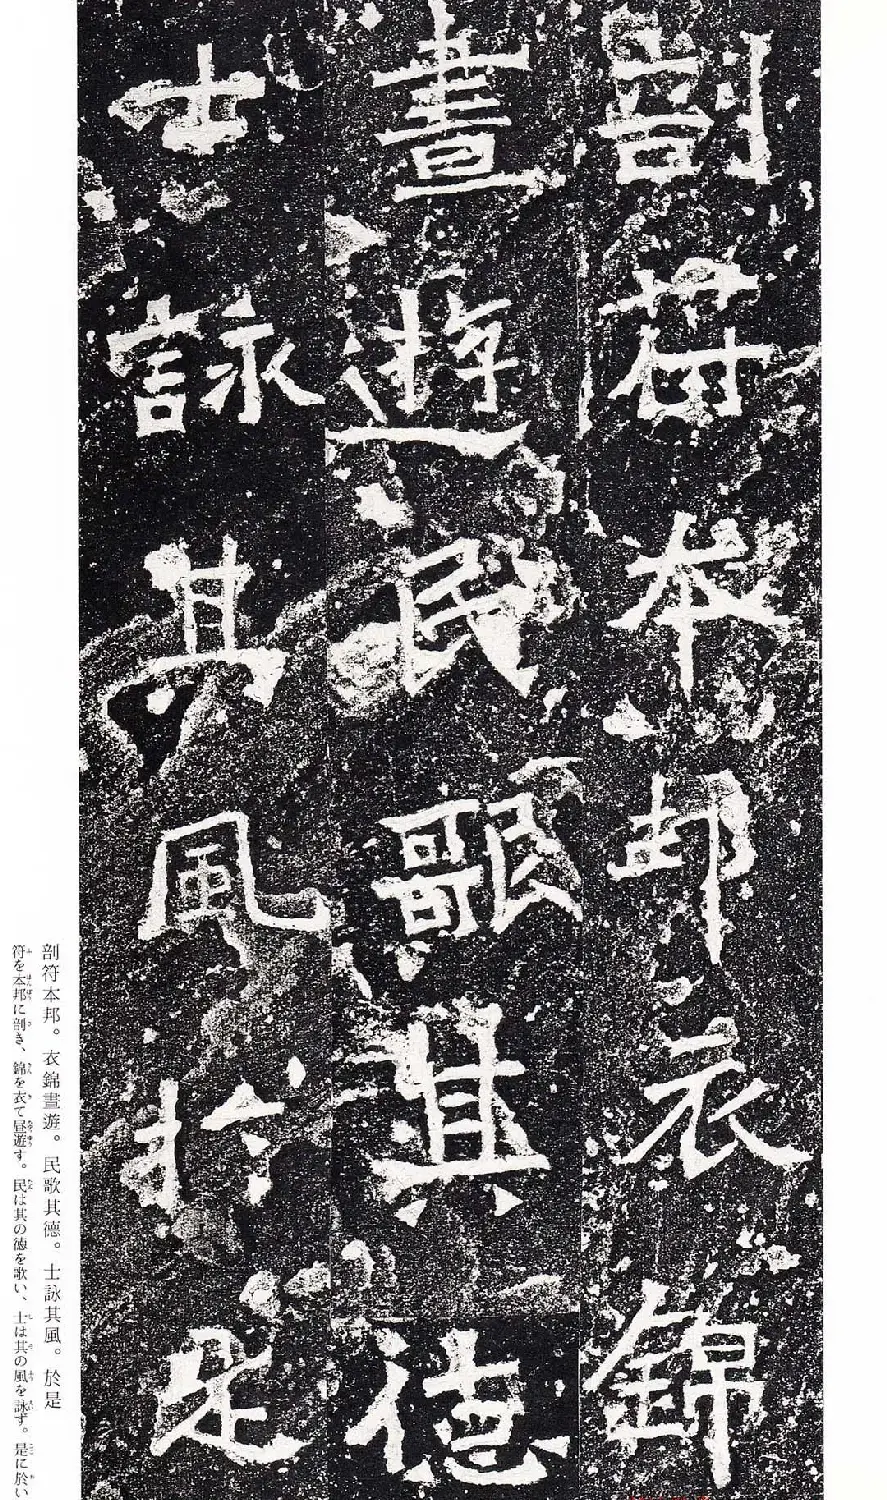 剖符本邦衣錦
晝遊民歌其德
士詠其風於是
剖符本邦。衣錦晝遊。民歌其德。士詠其風。於是
符を本邦に剖き、錦を衣て昼遊す。民は其の徳を歌い、士は其の風を詠ず。是に於い